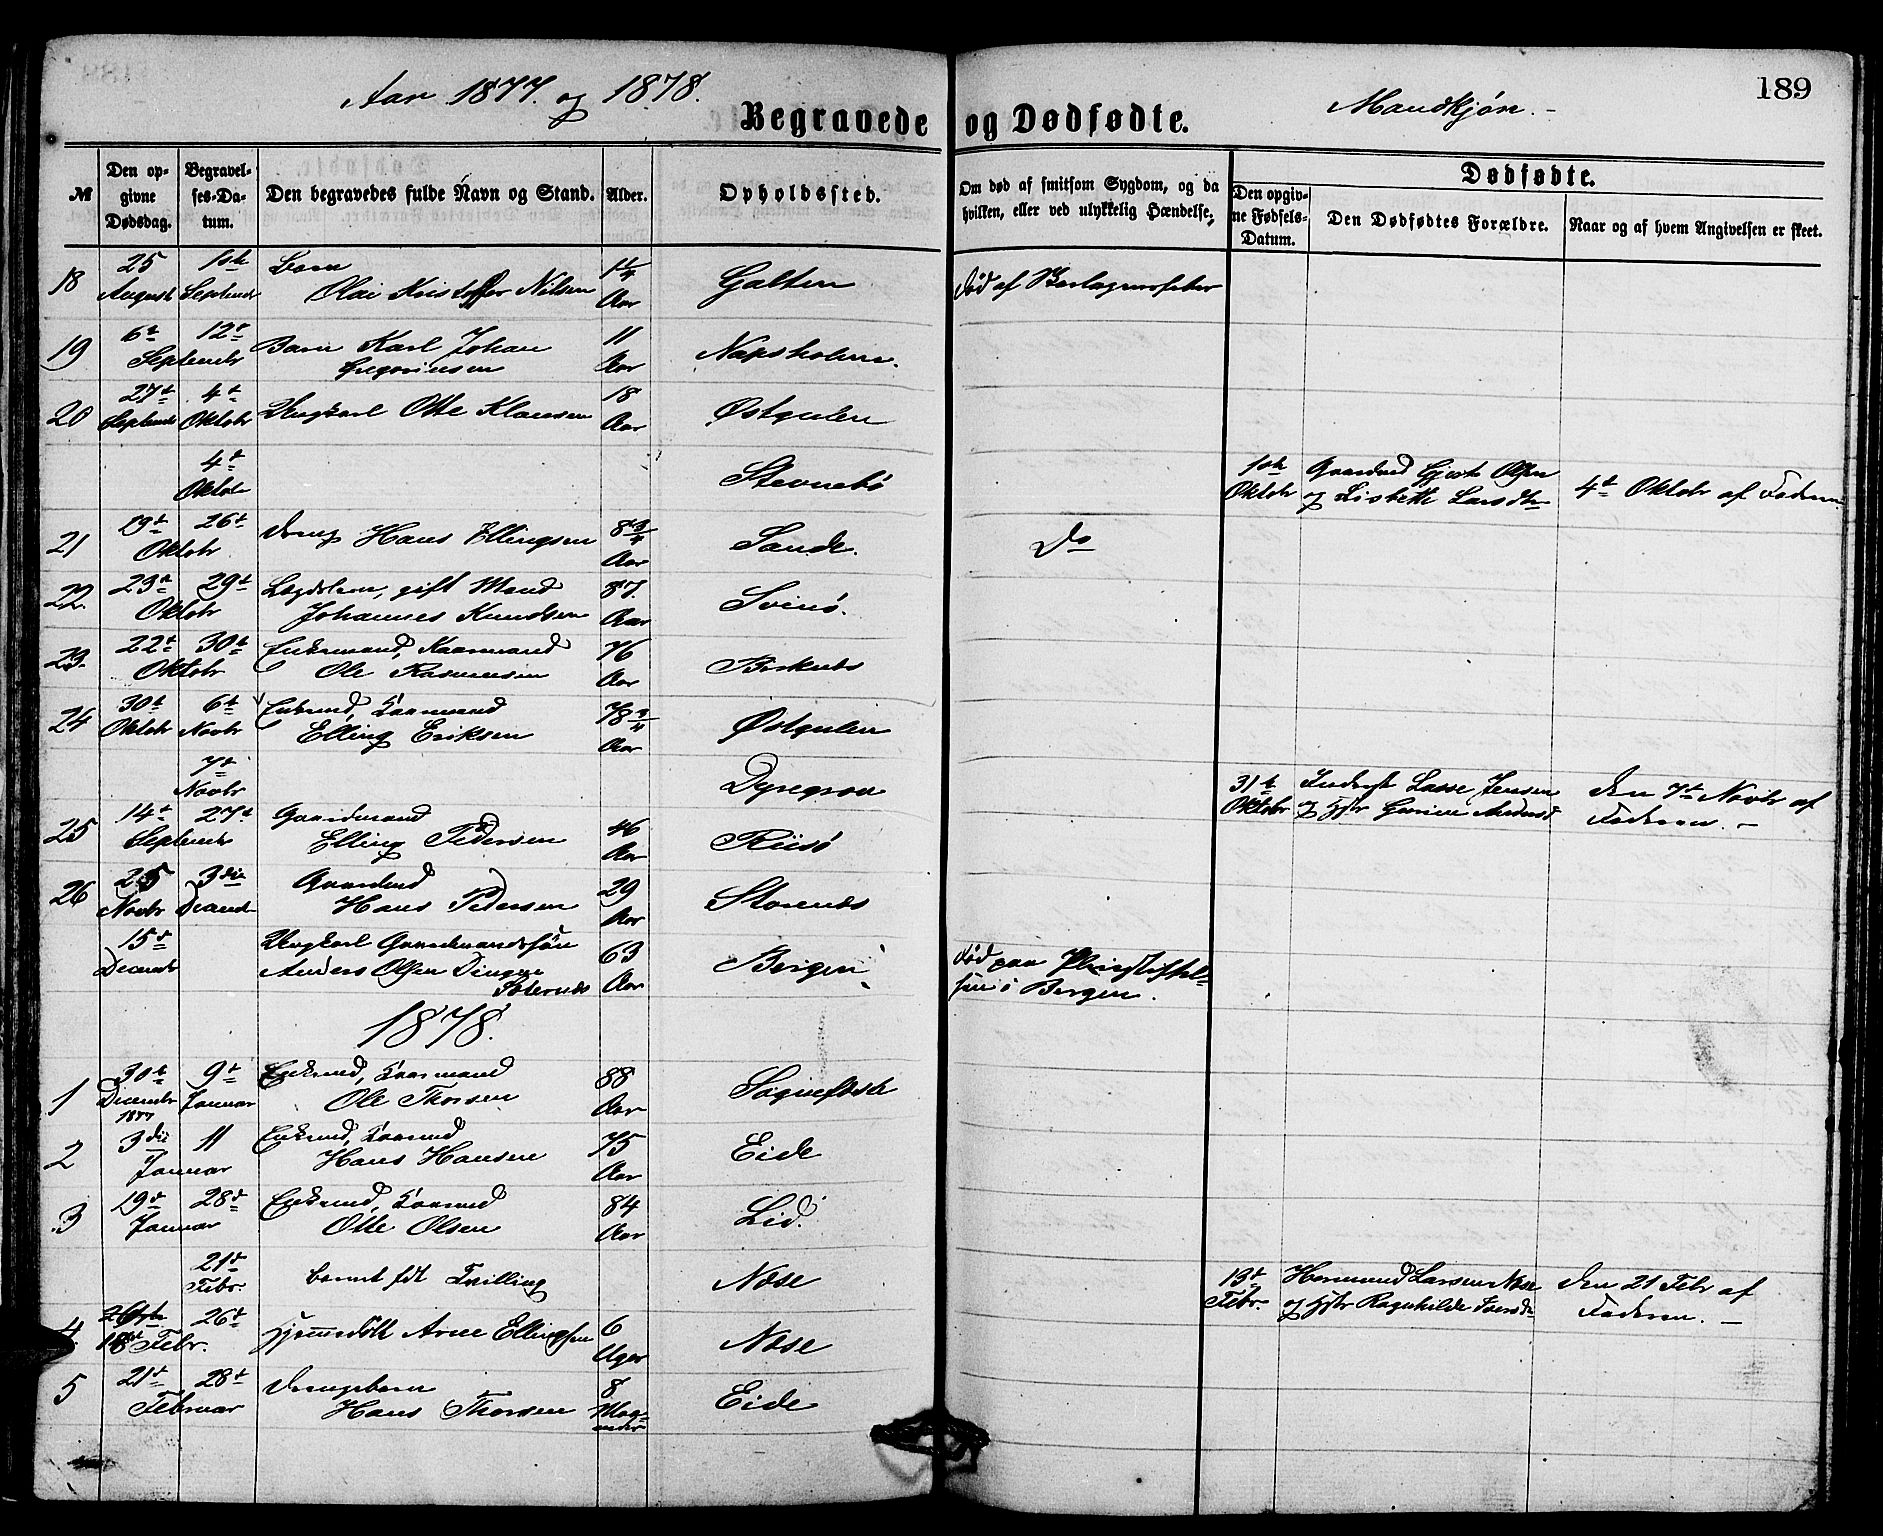 189
Aar 1877. og 1878.
Begravede og Dødfødte.
Mandkjøn.-
№ Den opgivne Dødsdag. Begravelses-Datum. Den begravedes fulde Navn og Stand. Alder. Opholdssted. Om død af smitsom Sygdom, og da hvilken, eller ved ulykkelig Hændelse. Dødfødte.
Den opgivne Fødsels-Datum. Den Dødfødtes Forældre. Naar og af hvem Angivelsen er skeet.
18 25 August 1ste Septembr Barn Olai Kristoffer Nilsen 1¼ Aar Galten Død af
19 6te 12te Septembr Barn Karl Johan Gregoriusen 11 Aar Næpsholmen.
20 27de Septembr 4de Oktobr Ungkarl Otte Klausen 18 Aar Østgulen
4de Oktobr Stevnebø 1ste Oktobr Gaardmd Gjert Olsen og Lisbette Larsdtr 4de Oktobr af Faderen
21 19de 26de Oktobr Dreng Hans Ellingsen 8¾ Aar Sande. Do
22. 23de 29de Oktobr Lægdslem, gift Mand Johannes Knudsen 87. Aar Svinø.
23. 22de 30te Oktobr Enkemand, Kaarmand Ole Rasmussen 76 Aar
24 30te Oktobr 6te Novbr Enkemd, Kaarmand Elling Eriksen 78¾ Aar Østgulen
7de Novbr Dyregrov 31te Oktobr Lasse Jensen og Hstr Den 7de Novbr af Faderen.-
25 14de 27de Septembr Gaardmand Elling Pedersen 46 Aar Riisø
26 25 Novbr 3die Decembr Gaardmd Hans Pedersen 29 Aar Storenæs
15de Decembr Ungkarl Gaardmandssøn Anders Olsen Dingenæs 63 Aar Bergen Død paa Pleiestiftelsen i Bergen.
1878.
1 30te Decembr 1877 9de Januar Enkemd, Kaarmand Ole Thorsen 88 Aar Sogneffeste
2 3die 11 Januar Enkemd, Kaarmd Hans Hansen 75 Aar Eide
3 19de 28de Januar Enkemd, Kaarmd Otte Olsen 84 Aar Lid.
21de Febr. Tvilling Nøse 13de Febr. Hermund Larsen Nøse og Hstr Ragnhilde Iversdtr Den 21 Febr af Faderen.-
4 18de Febr. 26de Hjemmedøbt Arne Ellingsen 6 Uger Nøse
5 21de 28de Februar Drengebarn Hans Thorsen 8 Maaneder Eide